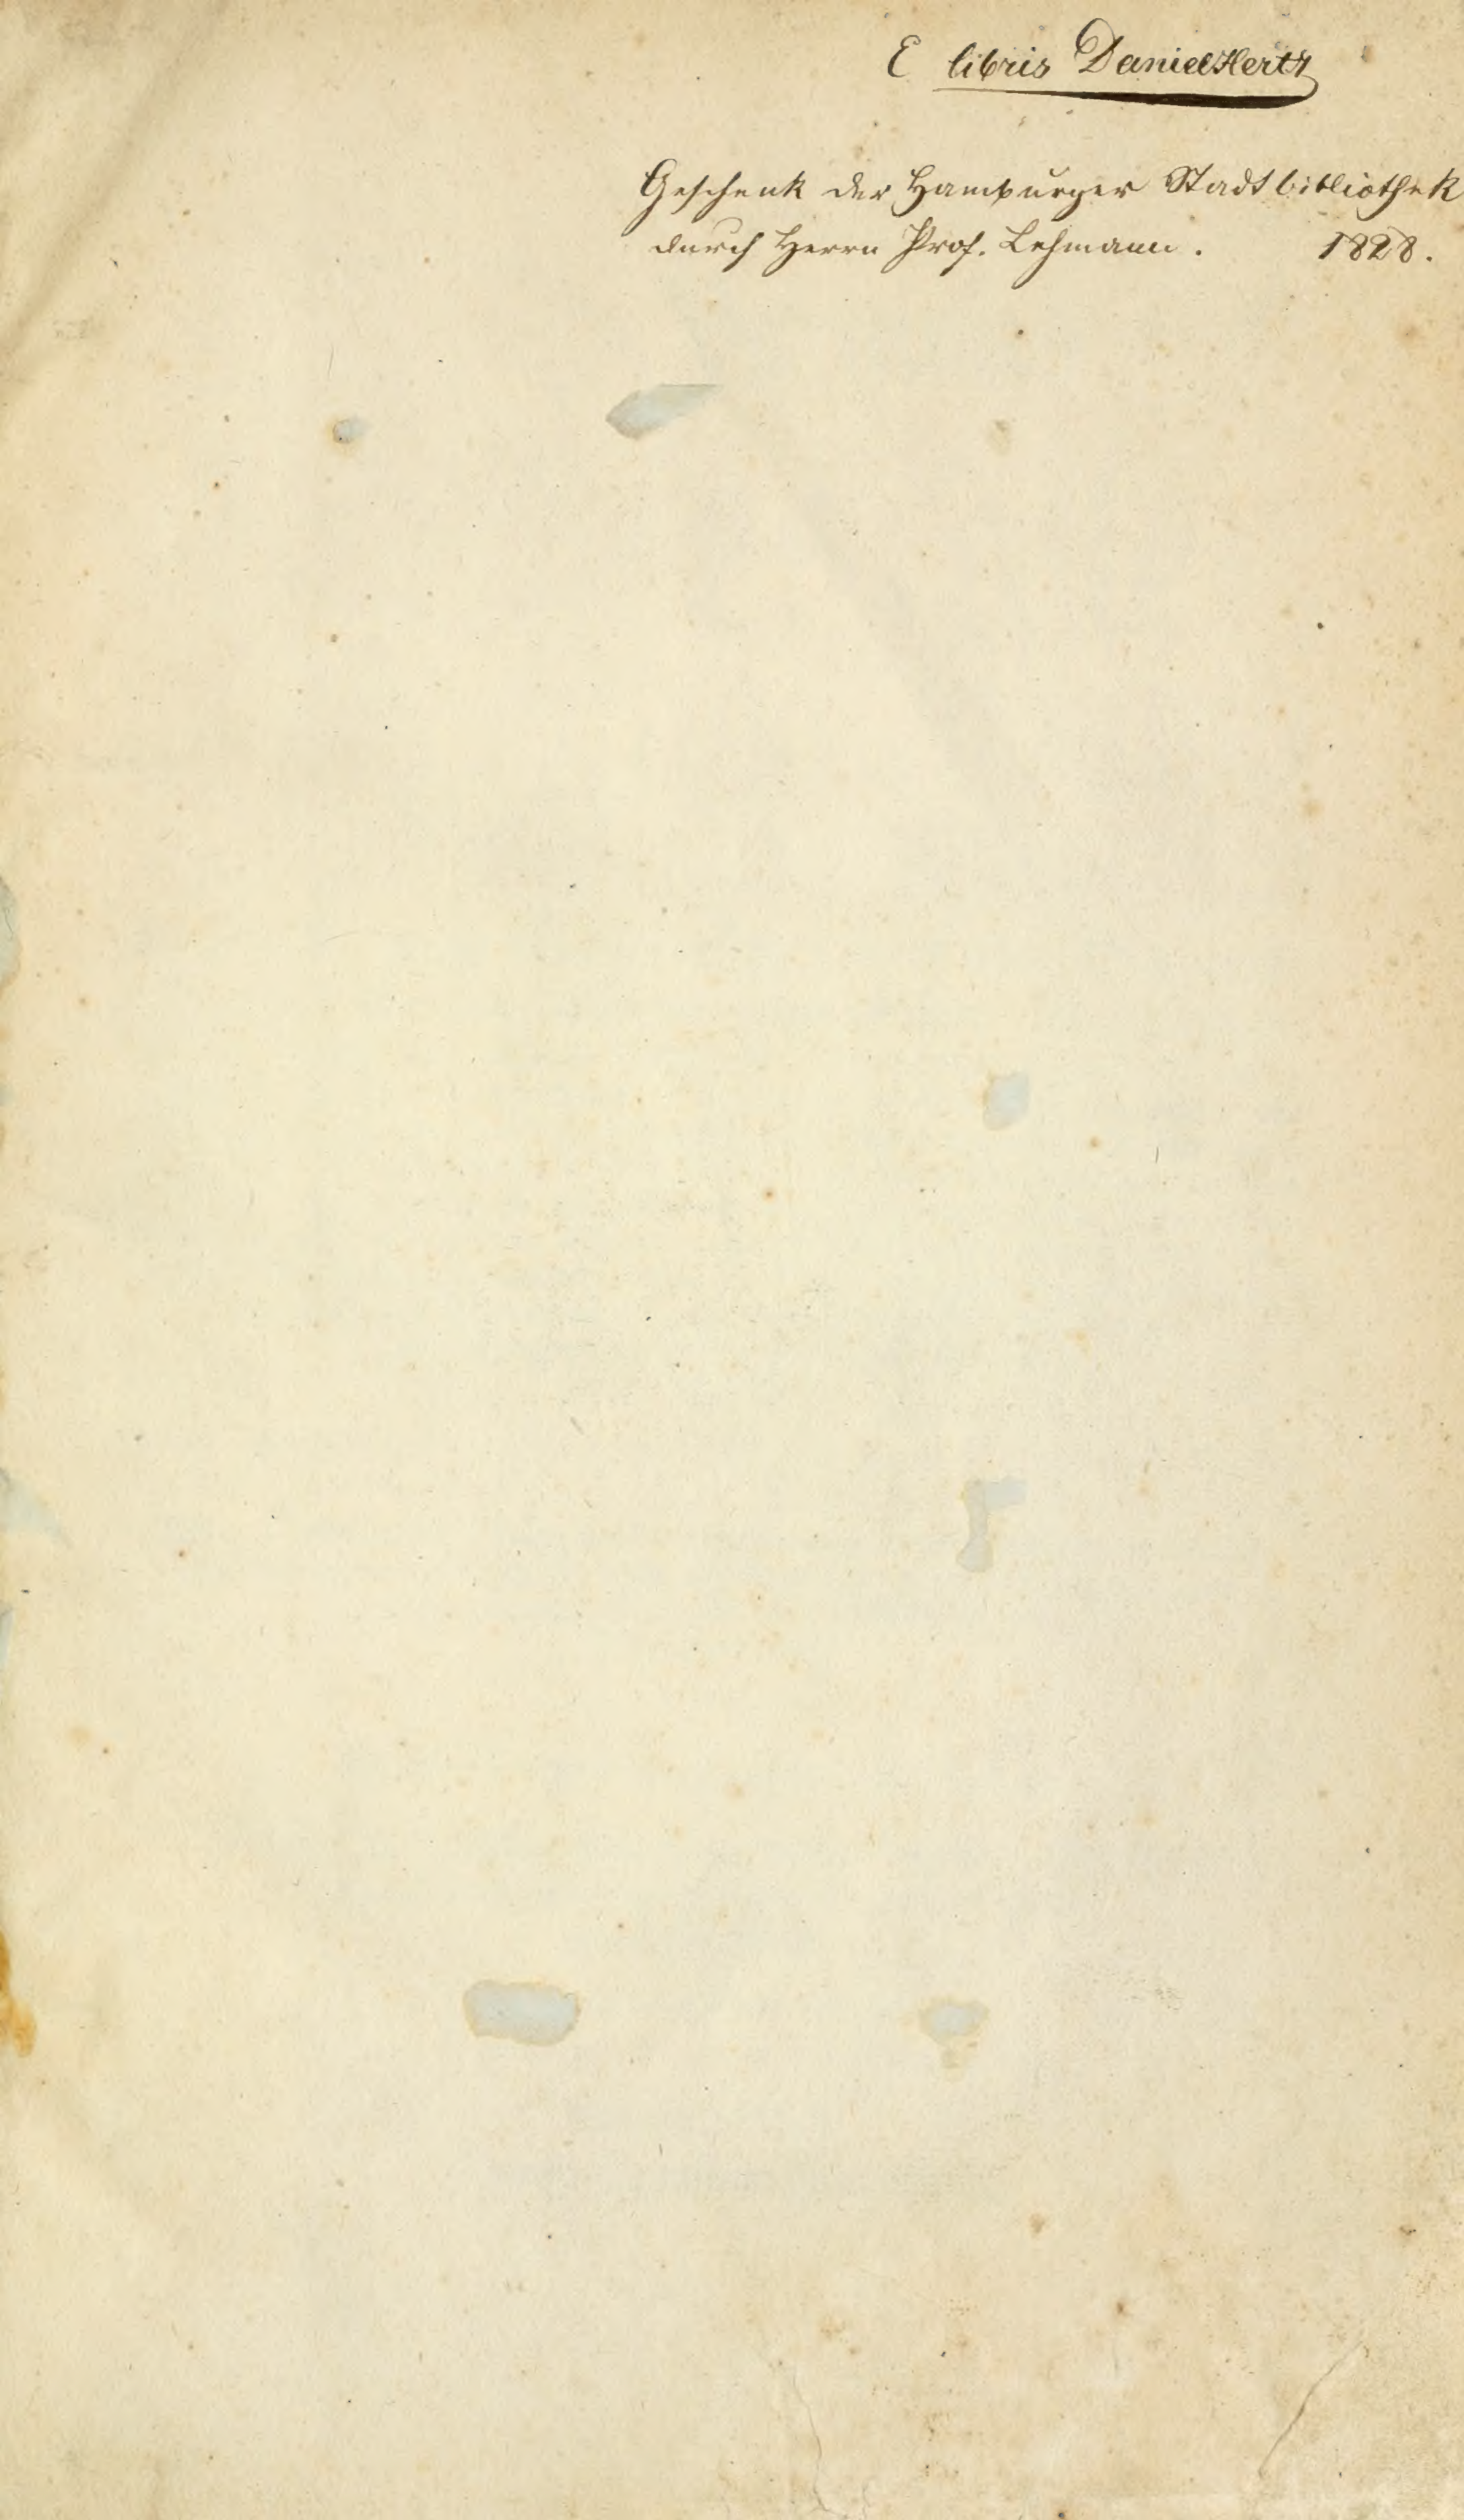 E libris Daniel Hertz
Geschenk der Hamburger Stadtbibliothek
durch Herrn Prof. Lehmann. 1828.